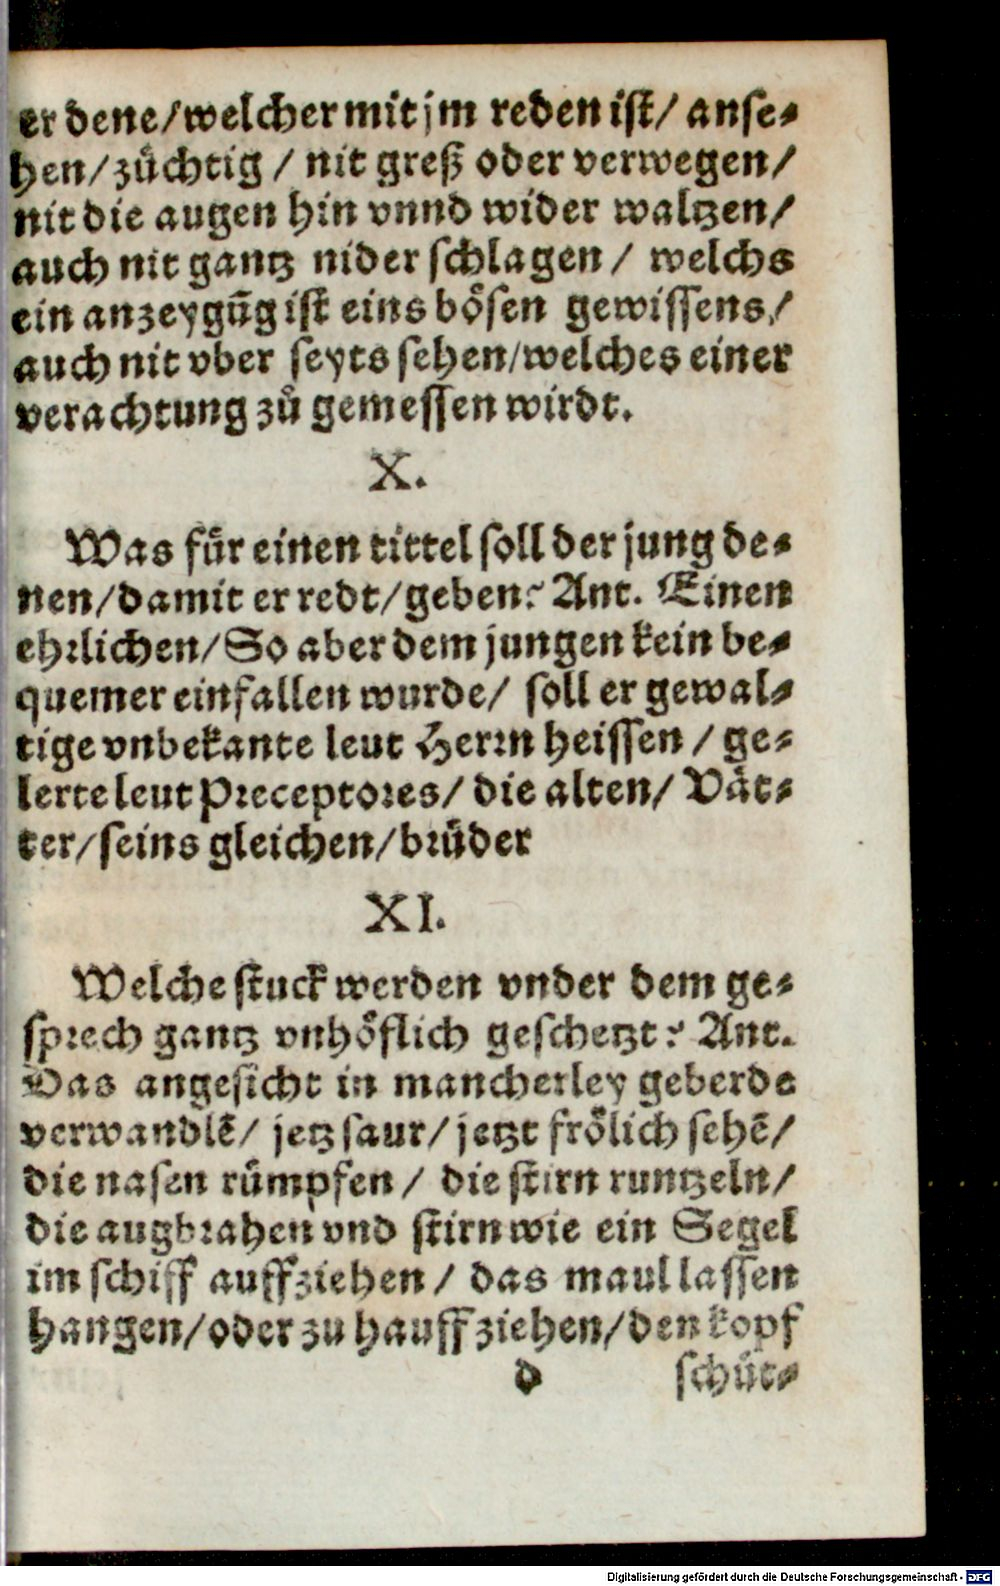 er dene/welcher mit jm reden ist/ anse-
hen/züchtig / nit greß oder verwegen/
nit die augen hin vnnd wider waltzen/
auch nit gantz nider schlagen / welchs
ein anzeygūg ist eins bösen gewissens/
auch nit vber seyts sehen/welches einer
verachtung zů gemessen wirdt.
X.
Was für einen tittel soll der jung de-
nen/damit er redt/geben? Ant. Einen
ehrlichen/So aber dem jungen kein be-
quemer einfallen wurde/ soll er gewal-
tige vnbekante leut Herrn heissen / ge-
lerte leut Preceptores/ die alten/ Vät-
ter/seins gleichen/brüder
XI.
Welche stuck werden vnder dem ge-
sprech gantz vnhöflich geschetzt? Ant.
Das angesicht in mancherley geberde
verwandlē/ jetz saur/jetzt frölich sehē/
die nasen rümpfen / die stirn runtzeln/
die augbrahen vnd stirn wie ein Segel
im schiff auffziehen / das maul lassen
hangen/oder zu hauff ziehen/den kopf
d schüt-
Digitalisierung gefördert durch die Deutsche Forschungsgemeinschaft - DFG